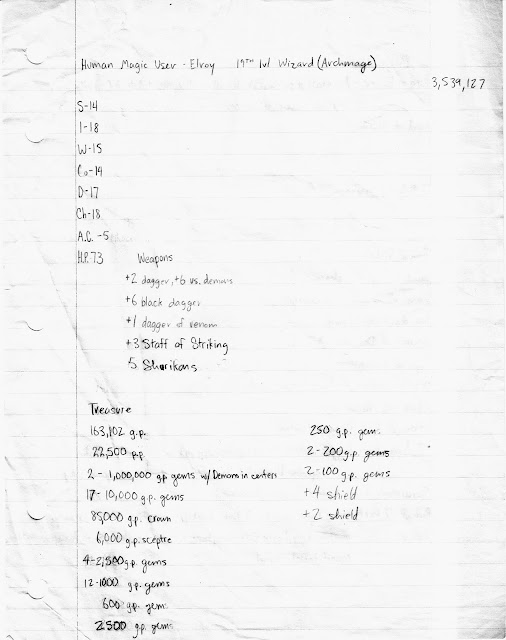 Human Magic User - Elroy 19TH lvl Wizard (Archmage)
3,539,127
S-14
I-18
W-15
Co-14
D-17
Ch-18
A.C. -5
H.P. 73 Weapons
+2 dagger, +6 vs. demons
+6 black dagger
+1 dagger of venom
+3 Staff of Striking
5 Shurikans
Treasure
163,102 g.p.
22,500 p.p.
2 - 1,000,000 g.p. gems w/ Demons in centers
17 - 10,000 g.p. gems
85,000 g.p. crown
6,000 g.p. sceptre
4 - 2,500 g.p. gems
12 - 1000 g.p. gems
600 g.p. gem
2500 g.p. gems
250 g.p. gem
2 - 200 g.p. gems
2 - 100 g.p. gems
+4 shield
+2 shield